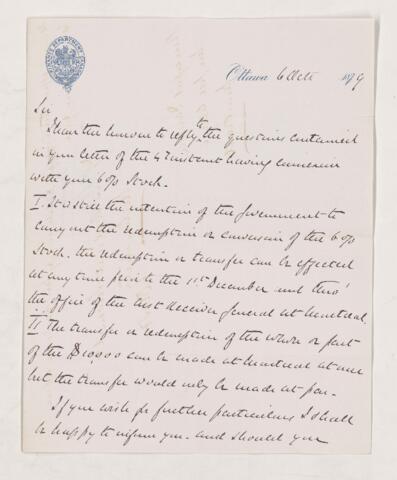 Ottawa 6 Octr 1879
Sir
I have the honour to reply to the questions contained
in your letter of the 4th instant having concern
with your 6 o/o Stock.
I. It is still the intention of the Government to
carry out the redemption or conversion of the 6 o/o
Stock. the redemption or transfer can be effected
at any time prior to the 1st December next thro'
the office of the Asst Receiver General at Montreal.
II The transfer or redemption of the whole or part
of the $10000 can be made at Montreal at once
but the transfer would only be made at par.
If you wish for further particulars I shall
be happy to inform you. and should you